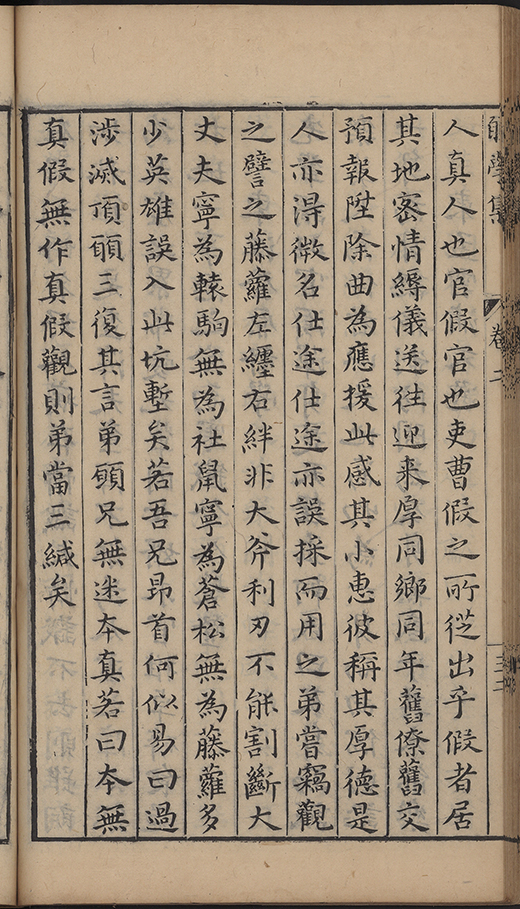 人真人也官假官也吏曹假之所從出乎假者居
其地密情縟儀送徃迎来厚同鄉同年舊僚舊交
預報陞除曲為應援此感其小惠彼稱其厚德是
人亦淂微名仕途仕途亦誤採而用之弟嘗竊觀
之譬之藤蘿左纏右絆非大斧利刃不能割斷大
丈夫寧為轅駒無為社鼠寧為蒼松無為藤蘿多
少英雄誤入此坑塹矣若吾兄昂首何似易曰過
涉滅頂頤三復其言弟願兄無迷本真若曰本無
真假無作真假觀則弟當三緘矣
卷二